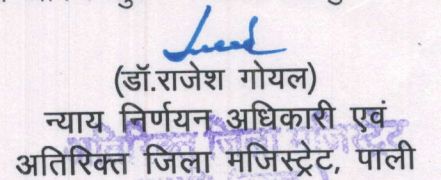 (डॉ.राजेश गोयल)
न्याय निर्णयन अधिकारी एवं
अतिरिक्त जिला मजिस्ट्रेट, पाली